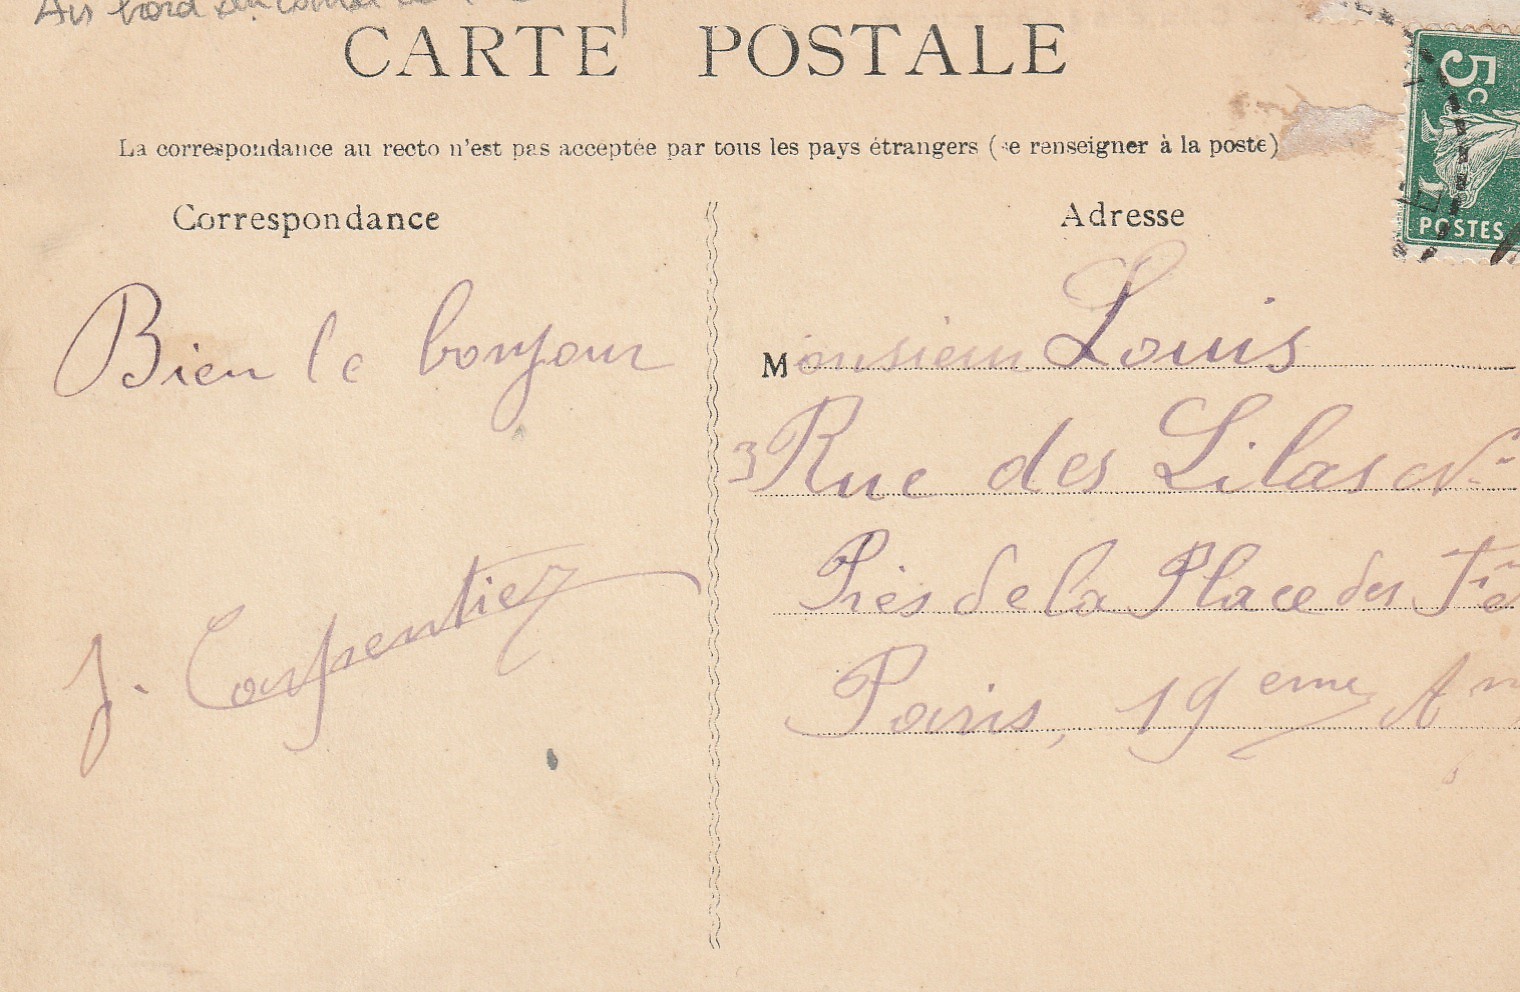 Au bord du canal de
CARTE POSTALE
La correspondance au recto n'est pas acceptée par tous les pays étrangers (se renseigner à la poste)
Correspondance
Adresse
5c
POSTES
Bien le bonjour
J. Carpentier
Monsieur Louis
3 Rue des Lilas N
Près de la Place des Fê
Paris, 19eme Arr